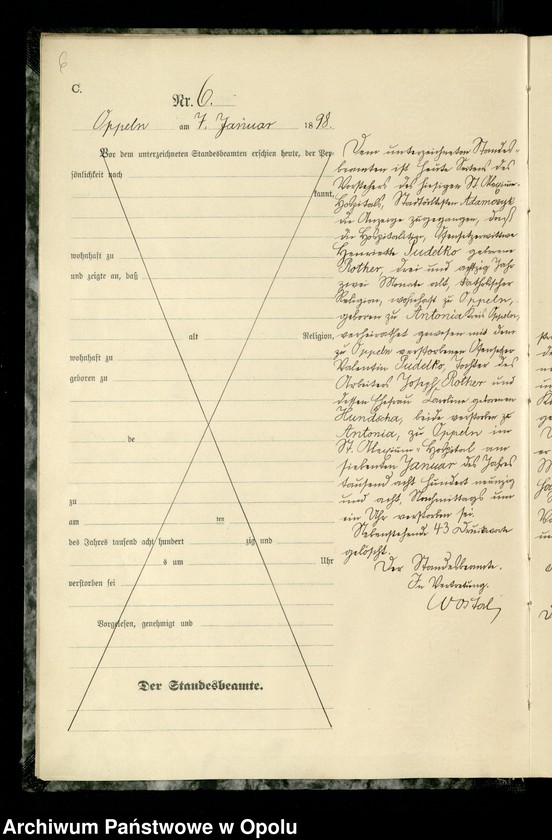 6
C.
Nr. 6.
Oppeln am 7. Januar 1898.
Vor dem unterzeichneten Standesbeamten erschien heute, der Per-
sönlichkeit nach
kannt,
wohnhaft zu
und zeigte an, daß
alt Religion,
wohnhaft zu
geboren zu
be
zu
am ten
des Jahres tausend acht hundert zig und
s um Uhr
verstorben sei
Vorgelesen, genehmigt und
Der Standesbeamte.
Dem unterzeichneten Standes-
beamten ist heute Seitens des
Vorstehers des hiesigen St. Alexius-
Hospitals, Stadtältesten Adamczyk
die Anzeige zugegangen, daß
die Hospitalitin,
Henriette Pudelko geborene
Rother, drei und achtzig Jahr
zwei Monate alt, katholischer
Religion, wohnhaft zu Oppeln,
geboren zu Antonia Kreis Oppeln,
verheirathet gewesen mit dem
zu Oppeln verstorbenen Ofensetzer
Valentin Pudelko, Tochter des
Arbeiters Joseph Rother und
dessen Ehefrau geborenen
Hundscha, beide verstorben zu
Antonia, zu Oppeln im
St. Alexius-Hospital am
siebenten Januar des Jahres
tausend acht hundert neunzig
und acht, Nachmittags um
ein Uhr verstorben sei.
Nebenstehende 43 Druckworte
gelöscht.
Der Standesbeamte.
In Vertretung.
Wostal
Archiwum Państwowe w Opolu